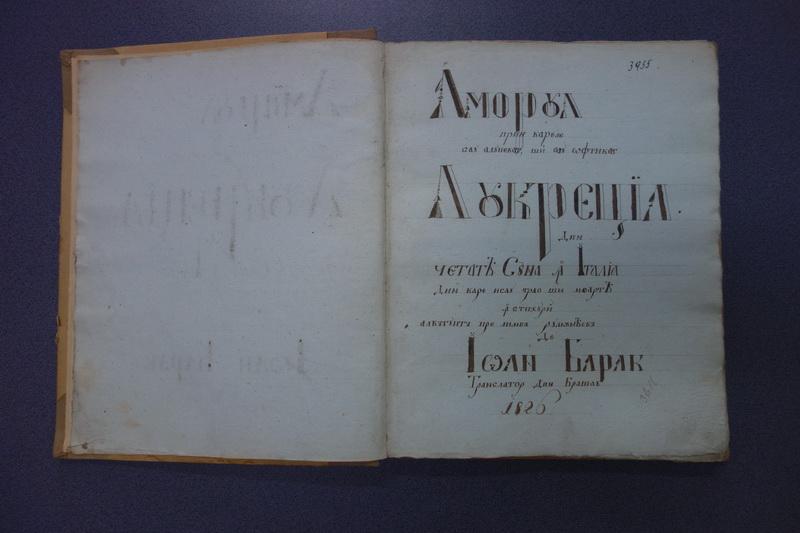 3955
Аморул
прин кареле
сау алунекат, ши сау софтикат
Лукреціа
Дин
четатѣ Сӱна ꙟ Італіа
Дин каре нсау трас ши моартѣ
ꙟ стихури
алкѫтуит пре лимба румѫнѣскъ
Де
Іѡан Барак
Транслатор дин Брашов
1826